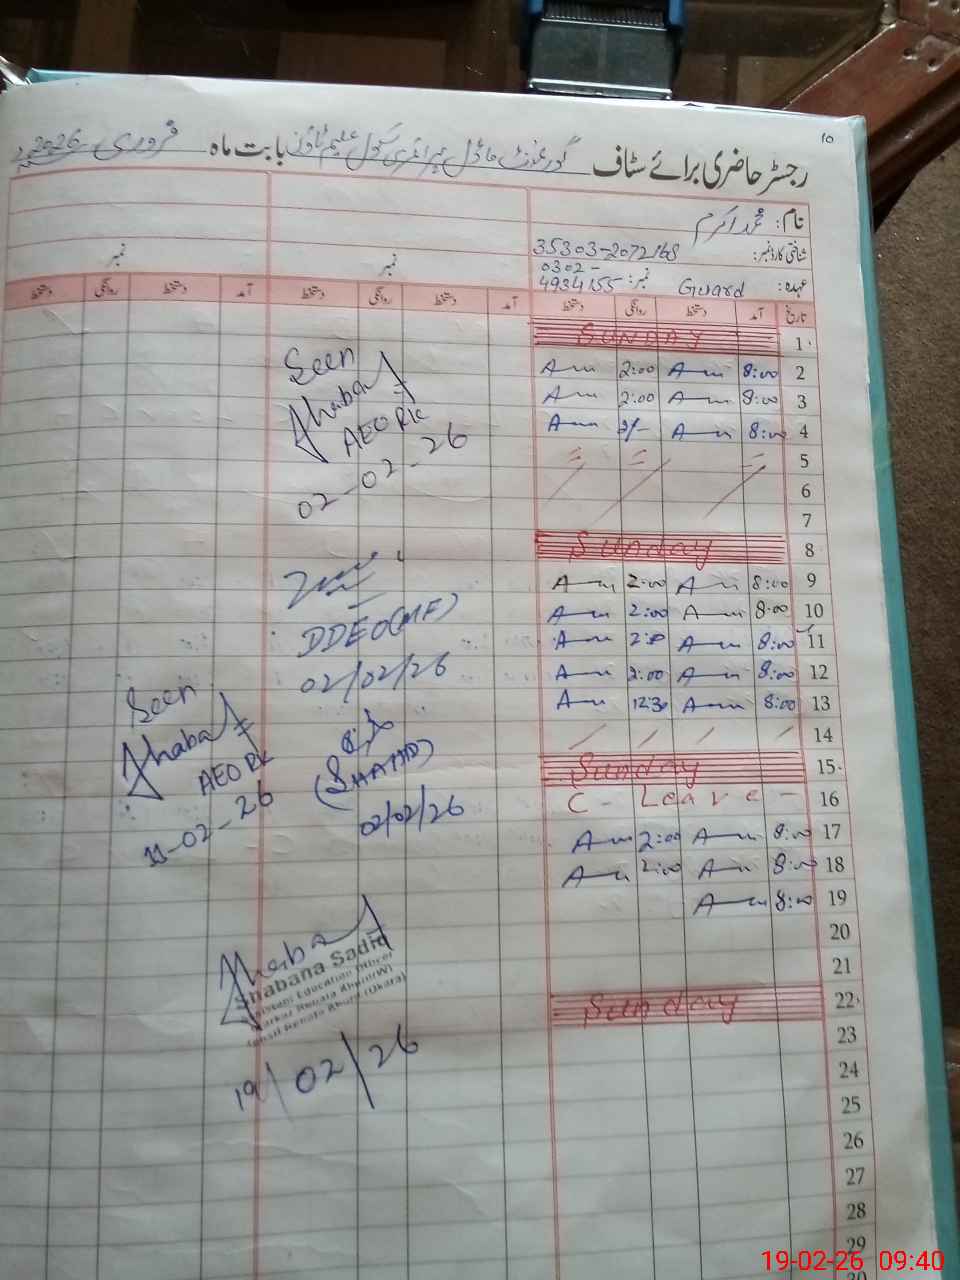 10
رجسٹر حاضری برائے سٹاف گورنمنٹ ماڈل پرائمری سکول علیم ٹاؤن بابت ماہ فروری 2026
نام: محمد اکرم
شناختی کارڈ نمبر: 35303-2072168
عہدہ: Guard نمبر: 0302-4934155
نمبر
نمبر
تاریخ آمد دستخط روانگی دستخط آمد دستخط روانگی دستخط آمد دستخط روانگی دستخط
1 SUNDAY
2 8:00 Am 2:00 Am
3 8:00 Am 2:00 Am
4 8:00 Am 2/- Am
5
6
7
8 Sunday
9 8:00 Am 2:00 Am
10 8:00 Am 2:00 Am
11 8:00 Am 2:00 Am
12 8:00 Am 2:00 Am
13 8:00 Am 12:30 Am
14
15 Sunday
16 C-Leave-
17 8:00 Am 2:00 Am
18 8:00 Am 2:00 Am
19 8:00 Am
20
21
22 Sunday
23
24
25
26
27
28
29
30
Seen
Shabana
AEO RK
02-02-26
DDEO(MF)
02/02/26
(SHAHID)
02/02/26
Seen
Shabana
AEO RK
11-02-26
Shabana
Shabana Sadiq
Assistant Education Officer
Markaz Renala Khurd(W)
Tehsil Renala Khurd (Okara)
19/02/26
19-02-26 09:40